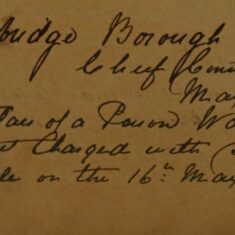 udge Borough
Chief Con
Ma
of a Person Wa
Charged with
le on the 16th May